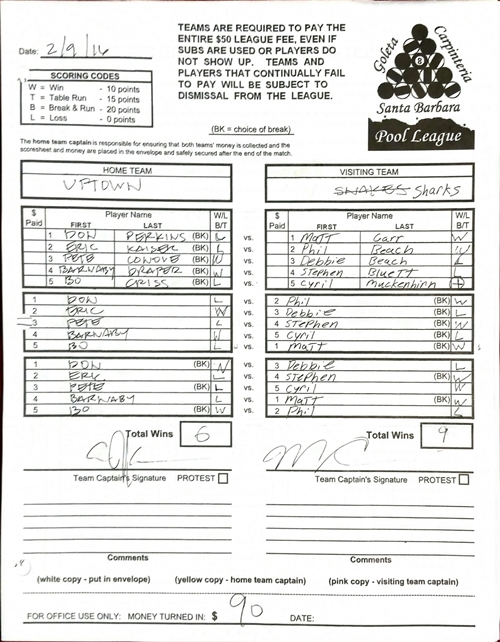 Date: 2/9/16
TEAMS ARE REQUIRED TO PAY THE
ENTIRE $50 LEAGUE FEE, EVEN IF
SUBS ARE USED OR PLAYERS DO
NOT SHOW UP. TEAMS AND
PLAYERS THAT CONTINUALLY FAIL
TO PAY WILL BE SUBJECT TO
DISMISSAL FROM THE LEAGUE.
Goleta Carpinteria
8
Santa Barbara
Pool League
SCORING CODES
W = Win - 10 points
T = Table Run - 15 points
B = Break & Run - 20 points
L = Loss - 0 points
(BK = choice of break)
The home team captain is responsible for ensuring that both teams' money is collected and the
scoresheet and money are placed in the envelope and safely secured after the end of the match.
HOME TEAM VISITING TEAM
UPTOWN SNAKES Sharks
$ Paid Player Name FIRST LAST W/L B/T $ Paid Player Name FIRST LAST W/L B/T
1 DON PERKINS (BK) L vs. 1 Matt Carr W
2 ERIC KAISER (BK) L vs. 2 Phil Beach W
3 PETE CONOVE (BK) W vs. 3 Debbie Beach L
4 BARNABY DRAPER (BK) W vs. 4 Stephen Bluett L
5 BO CRISS (BK) L vs. 5 Cyril Muckenhirn
1 DON L vs. 2 Phil (BK) W
2 ERIC W vs. 3 Debbie (BK) L
3 PETE L vs. 4 Stephen (BK) W
4 BARNABY W vs. 5 Cyril (BK) L
5 BO L vs. 1 Matt (BK) W
1 DON (BK) W vs. 3 Debbie L
2 ERIC L vs. 4 Stephen (BK) W
3 PETE (BK) L vs. 5 Cyril W
4 BARNABY L vs. 1 Matt (BK) W
5 BO (BK) W vs. 2 Phil L
Total Wins 6 Total Wins 9
Team Captain's Signature PROTEST Team Captain's Signature PROTEST
Comments Comments
(white copy - put in envelope) (yellow copy - home team captain) (pink copy - visiting team captain)
FOR OFFICE USE ONLY: MONEY TURNED IN: $ 90 DATE: